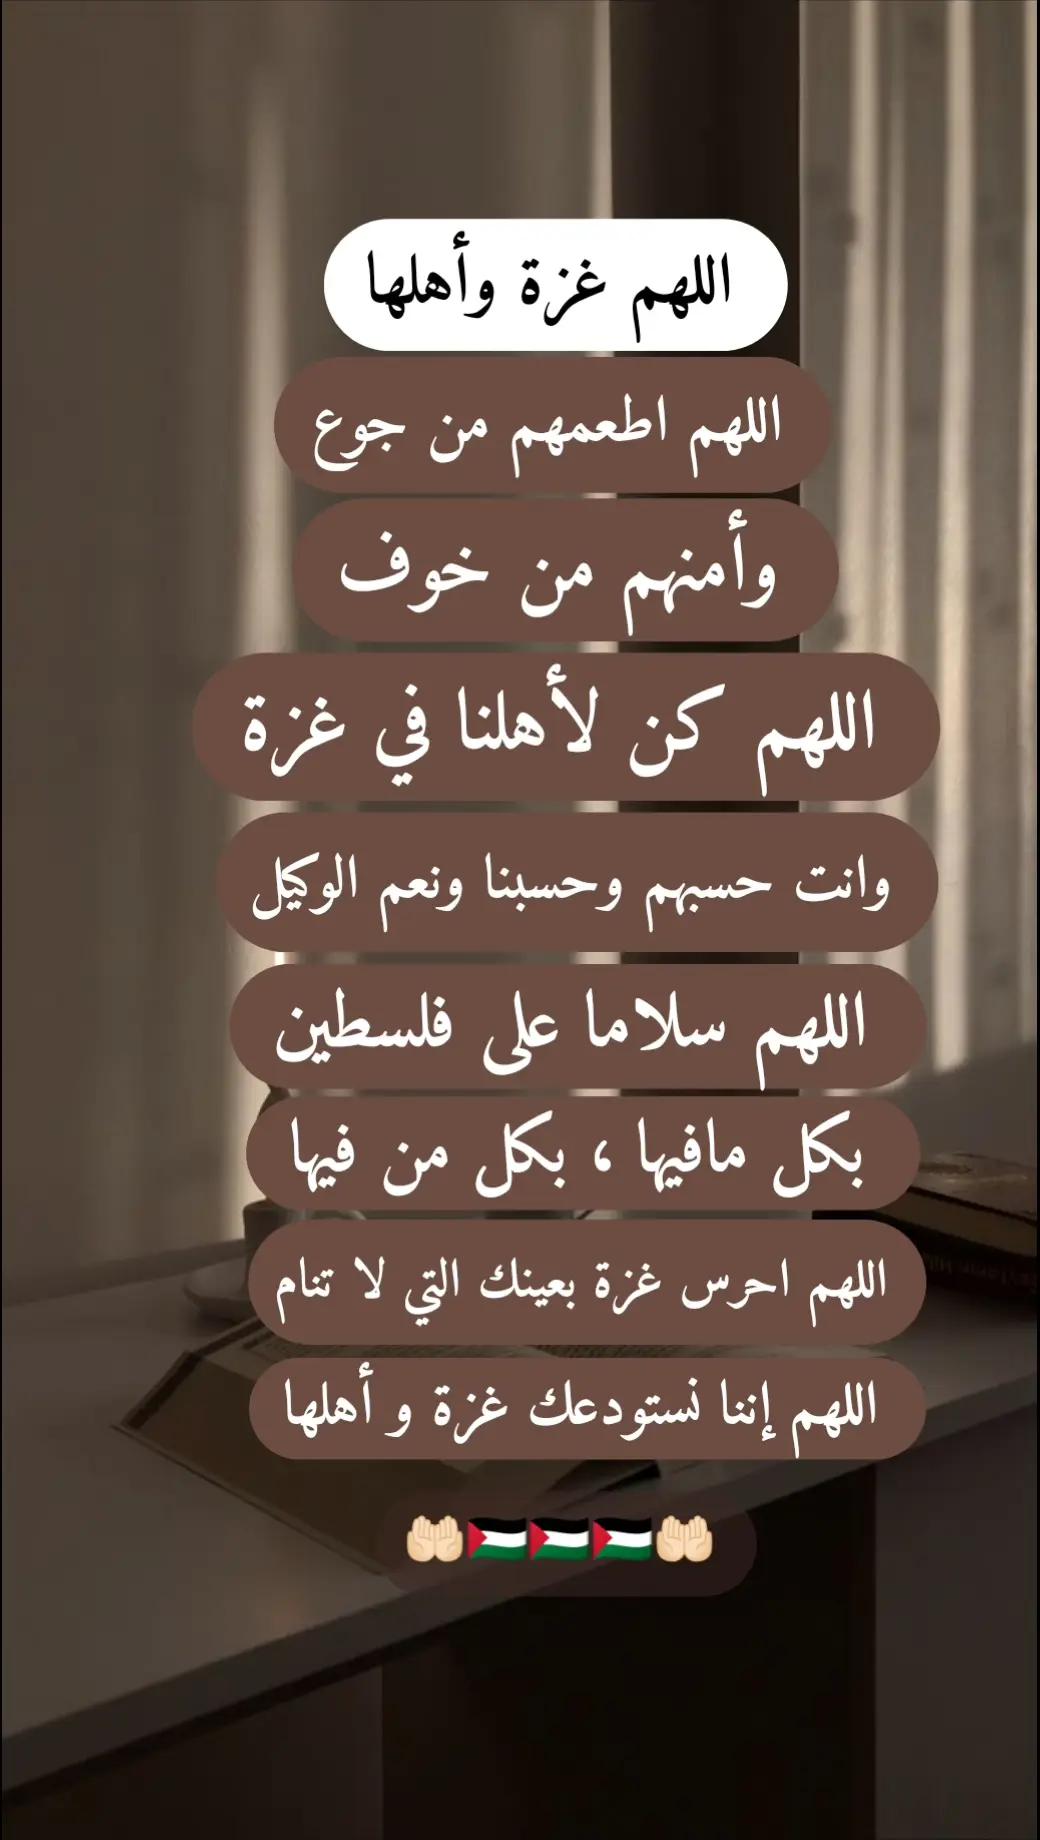 اللهم غزة وأهلها
اللهم اطعمهم من جوع
وأمنهم من خوف
اللهم كن لأهلنا في غزة
وانت حسبهم وحسبنا ونعم الوكيل
اللهم سلاما على فلسطين
بكل مافيها ، بكل من فيها
اللهم احرس غزة بعينك التي لا تنام
اللهم إننا نستودعك غزة و أهلها
🤲🏻🇵🇸🇵🇸🇵🇸🤲🏻